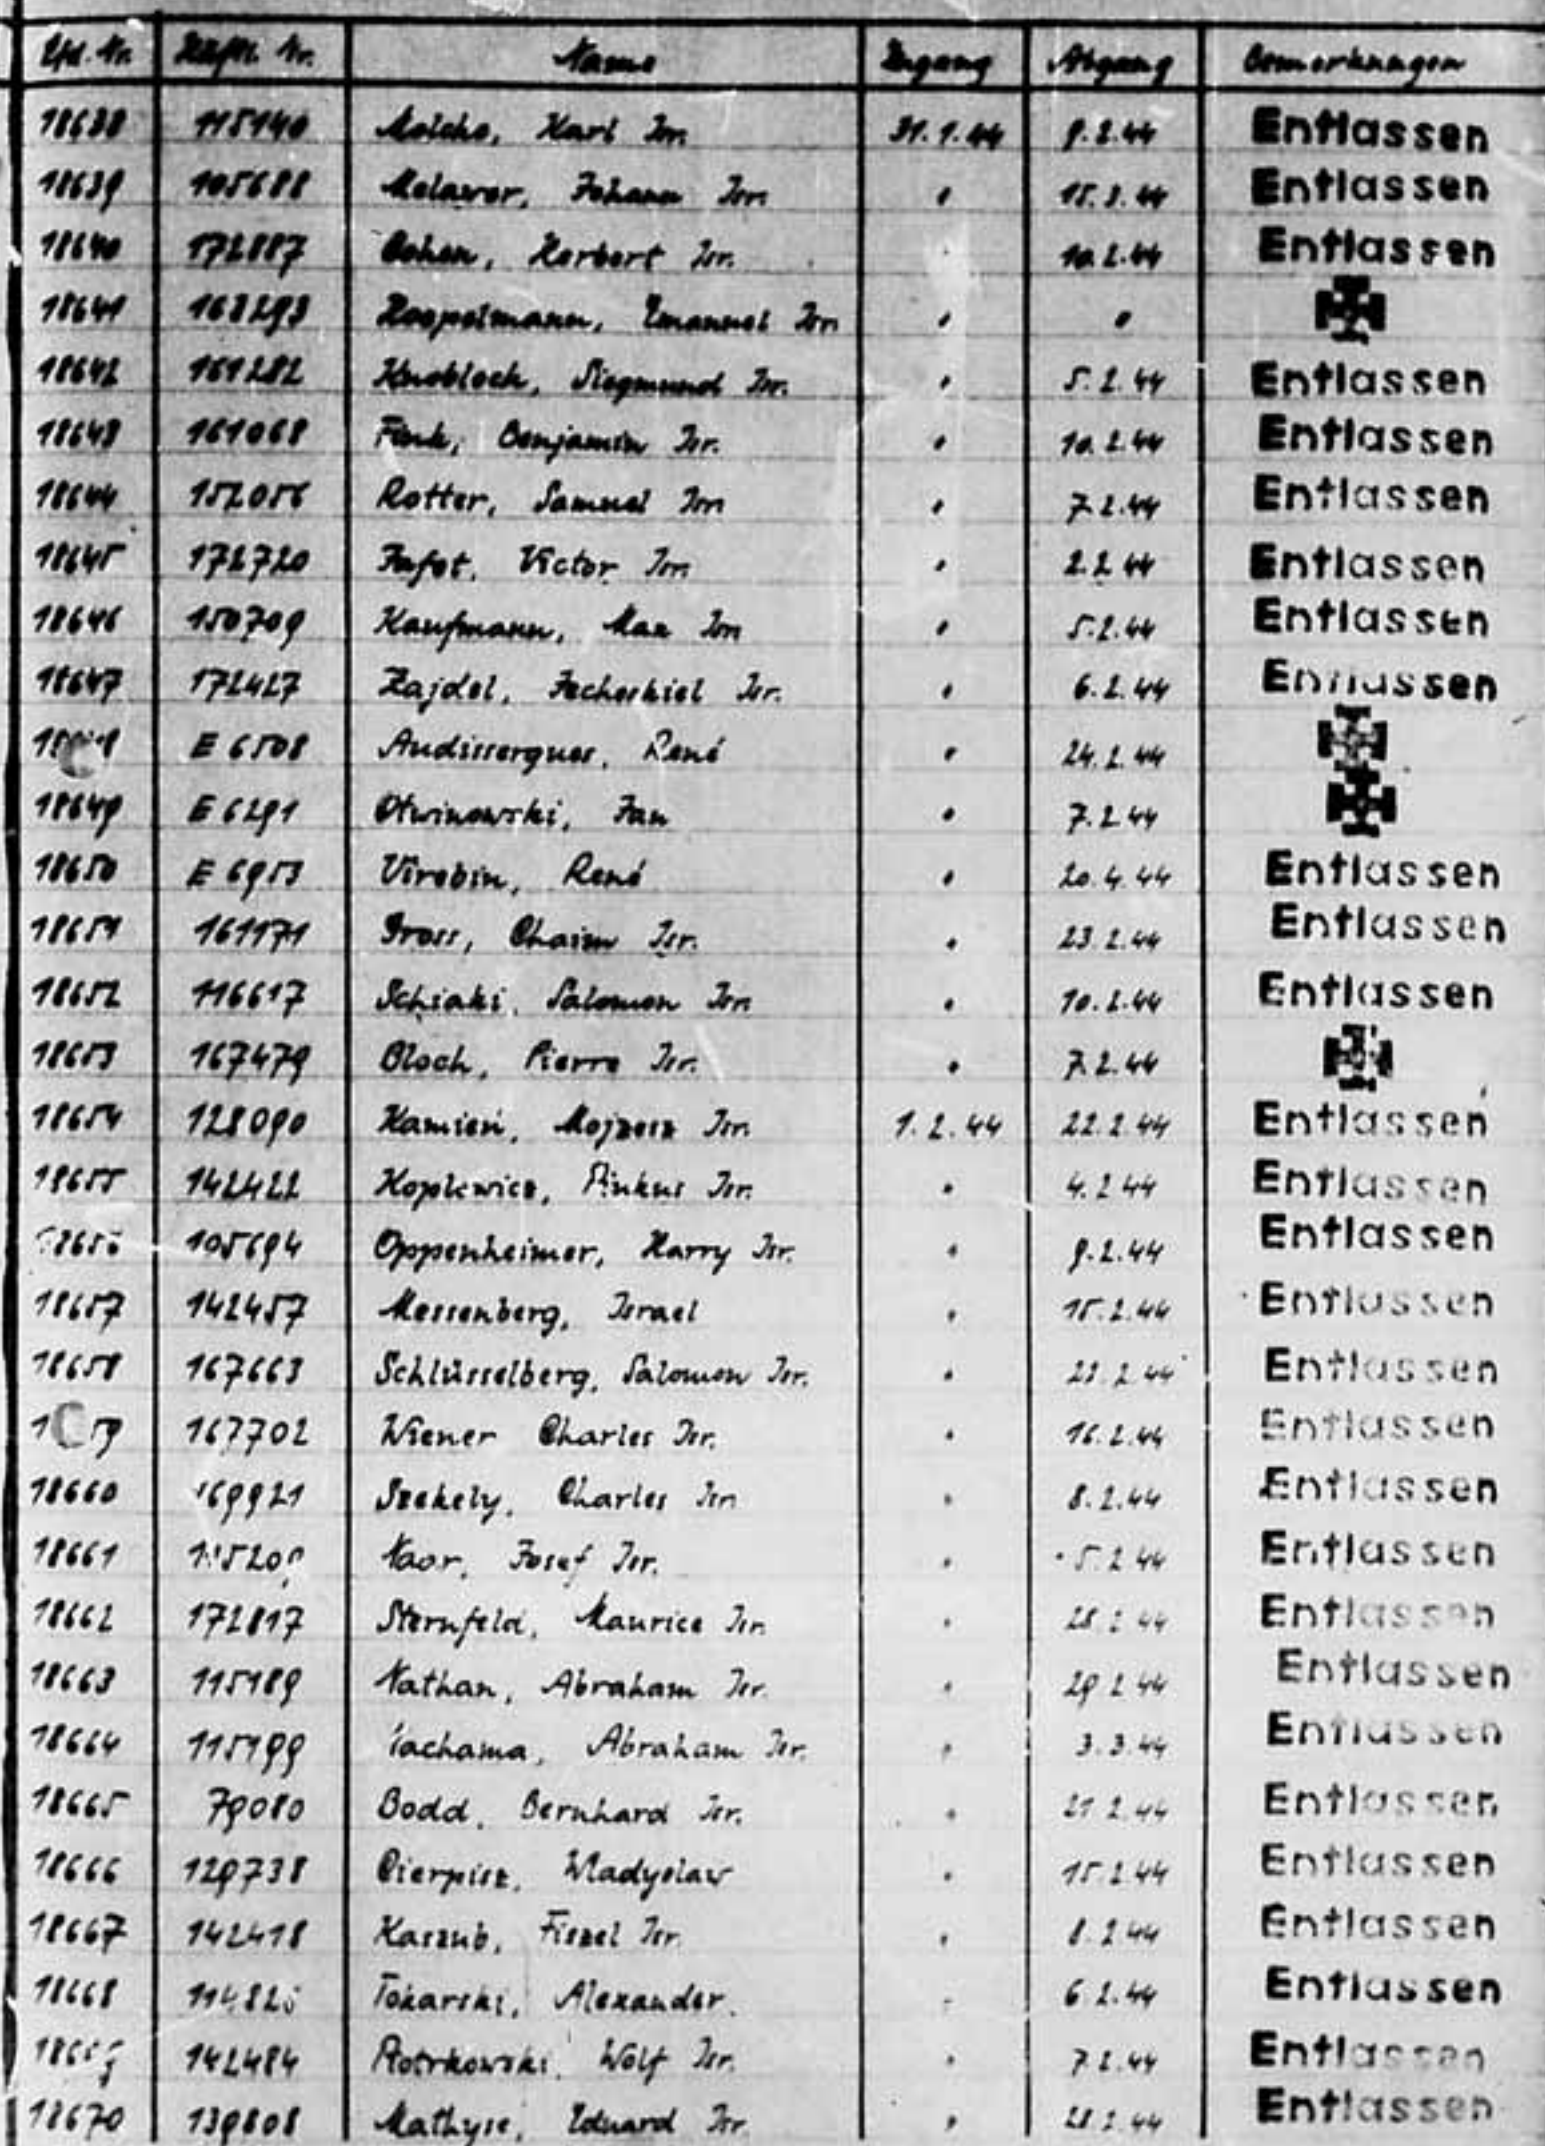 Lfd. Nr. Häftl. Nr. Name Zugang Abgang Bemerkungen
18638 115140 Molcho, Karl Isr. 31.1.44 9.2.44 Entlassen
18639 105688 Melawer, Johann Isr. " 15.2.44 Entlassen
18640 172887 Cohen, Herbert Isr. 10.2.44 Entlassen
18641 163293 Koppelmann, Emanuel Isr. " "
18642 161282 Knobloch, Siegmund Isr. " 5.2.44 Entlassen
18643 161068 Fink, Benjamin Isr. " 10.2.44 Entlassen
18644 152056 Rotter, Samuel Isr. " 7.2.44 Entlassen
18645 172720 Victor Isr. " 2.2.44 Entlassen
18646 150709 Kaufmann, Max Isr. " 5.2.44 Entlassen
18647 172427 Zajdel, Jecheskiel Isr. " 6.2.44 Entlassen
E 6508 Audisserques, René " 24.2.44
18649 E 6291 Otwinowski, Jan " 7.2.44
18650 E 6953 Virebin, René " 20.4.44 Entlassen
18651 161171 Gross, Chaim Isr. " 23.2.44 Entlassen
18652 116617 Schiaki, Salomon Isr. " 10.2.44 Entlassen
18653 167479 Bloch, Pierre Isr. " 7.2.44
18654 128090 Kamień, Mojzesz Isr. 1.2.44 22.2.44 Entlassen
18655 142422 Koplewicz, Pinkus Isr. " 4.2.44 Entlassen
18656 105694 Oppenheimer, Harry Isr. " 9.2.44 Entlassen
18657 142457 Messenberg, Israel " 15.2.44 Entlassen
18658 167663 Schlüsselberg, Salomon Isr. " Entlassen
167702 Wiener Charles Isr. " 16.2.44 Entlassen
18660 169921 Szekely, Charles Isr. " 8.2.44 Entlassen
18661 Naar, Josef Isr. " 5.2.44 Entlassen
18662 172817 Sternfeld, Maurice Isr. " 28.2.44 Entlassen
18663 115189 Nathan, Abraham Isr. " 29.2.44 Entlassen
18664 115199 Abraham Isr. " 3.3.44 Entlassen
18665 79080 Bodd, Bernhard Isr. " 21.2.44 Entlassen
18666 129738 Cierpisz, Wladyslaw " 15.2.44 Entlassen
18667 142418 Kaszub, Fiszel Isr. " 8.2.44 Entlassen
18668 Tokarski, Alexander. " 6.2.44 Entlassen
142484 Piotrkowski, Wolf Isr. " 7.2.44 Entlassen
18670 139808 Mathyse, Eduard Isr. " 28.2.44 Entlassen